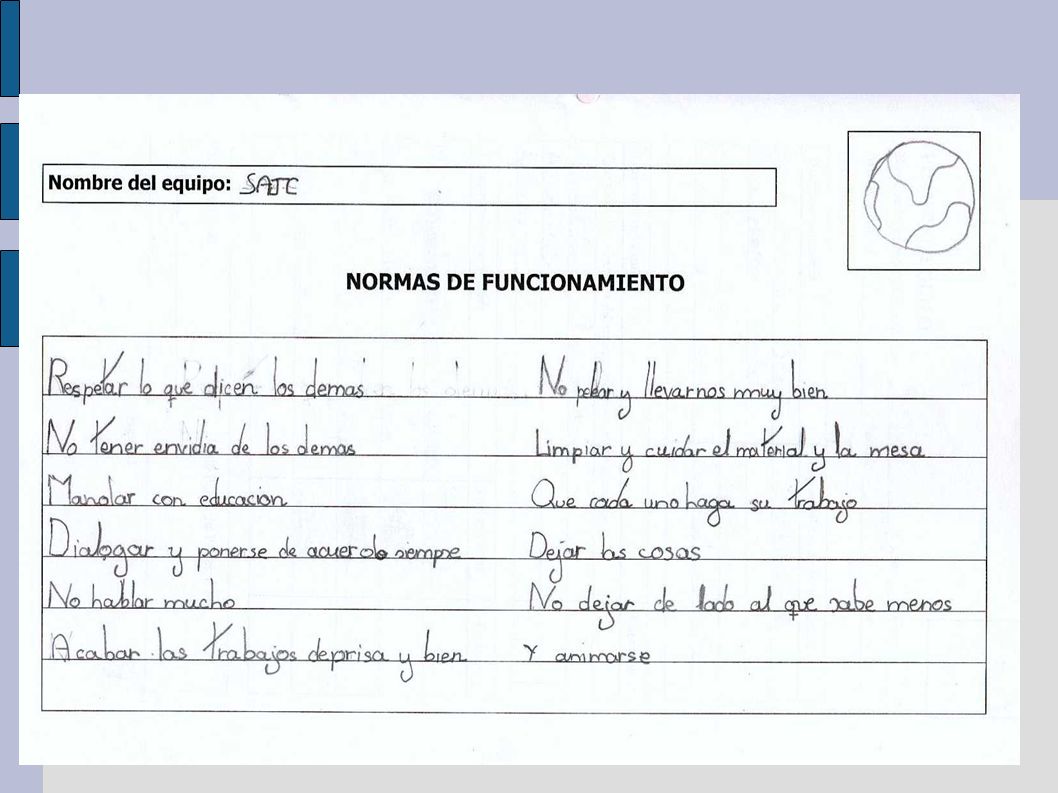 Nombre del equipo: SATE
NORMAS DE FUNCIONAMIENTO
Respetar lo que dicen los demas No pelear y llevarnos muy bien
No tener envidia de los demas Limpiar y cuidar el material y la mesa
Mandar con educacion Que cada uno haga su trabajo
Dialogar y ponerse de acuerdo siempre Dejar las cosas
No hablar mucho No dejar de lado al que sabe menos
Acabar las trabajos deprisa y bien Y animarse